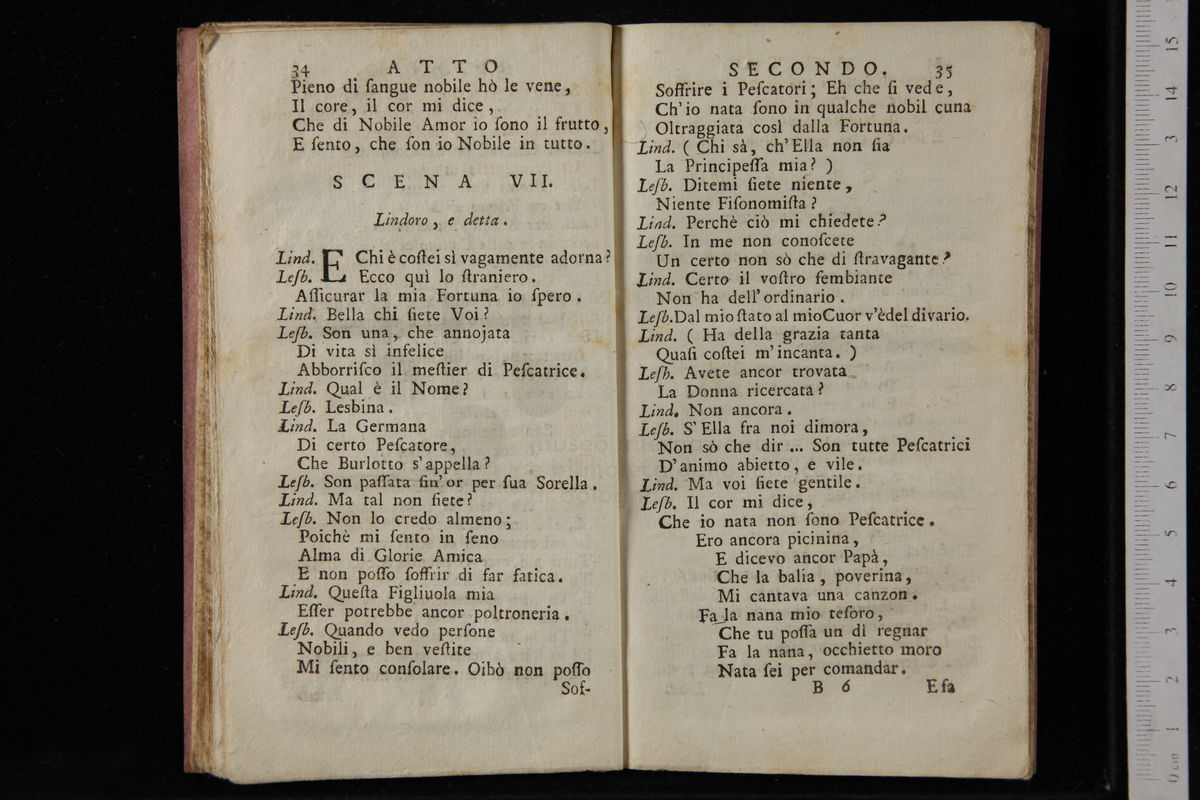 34 ATTO
Pieno di ſangue nobile hò le vene,
Il core, il cor mi dice,
Che di Nobile Amor io ſono il frutto,
E ſento, che ſon io Nobile in tutto.
SCENA VII.
Lindoro, e detta.
Lind. E Chi è coſtei sì vagamente adorna?
Leſb. Ecco quì lo ſtraniero.
Aſſicurar la mia Fortuna io ſpero.
Lind. Bella chi ſiete Voi?
Leſb. Son una, che annojata
Di vita sì infelice
Abborriſco il meſtier di Peſcatrice.
Lind. Qual è il Nome?
Leſb. Lesbina.
Lind. La Germana
Di certo Peſcatore,
Che Burlotto s'appella?
Leſb. Son paſſata ſin'or per ſua Sorella.
Lind. Ma tal non ſiete?
Leſb. Non lo credo almeno;
Poichè mi ſento in ſeno
Alma di Glorie Amica
E non poſſo ſoffrir di far fatica.
Lind. Queſta Figliuola mia
Eſſer potrebbe ancor poltroneria.
Leſb. Quando vedo perſone
Nobili, e ben veſtite
Mi ſento conſolare. Oibò non poſſo
Sof-
SECONDO. 35
Soffrire i Peſcatori; Eh che ſi vede,
Ch'io nata ſono in qualche nobil cuna
Oltraggiata così dalla Fortuna.
Lind. ( Chi sà, ch'Ella non ſia
La Principeſſa mia? )
Leſb. Ditemi ſiete niente,
Niente Fiſonomiſta?
Lind. Perchè ciò mi chiedete?
Leſb. In me non conoſcete
Un certo non sò che di ſtravagante?
Lind. Certo il voſtro ſembiante
Non ha dell'ordinario.
Leſb. Dal mio ſtato al mio Cuor v'è del divario.
Lind. ( Ha della grazia tanta
Quaſi coſtei m'incanta. )
Leſb. Avete ancor trovata
La Donna ricercata?
Lind. Non ancora.
Leſb. S'Ella fra noi dimora,
Non sò che dir ... Son tutte Peſcatrici
D'animo abietto, e vile.
Lind. Ma voi ſiete gentile.
Leſb. Il cor mi dice,
Che io nata non ſono Peſcatrice.
Ero ancora picinina,
E dicevo ancor Papà,
Che la balia, poverina,
Mi cantava una canzon.
Fa la nana mio teſoro,
Che tu poſſa un dì regnar
Fa la nana, occhietto moro
Nata ſei per comandar.
B 6 E fa
15
14
13
12
11
10
9
8
7
6
5
4
3
2
1
0 cm